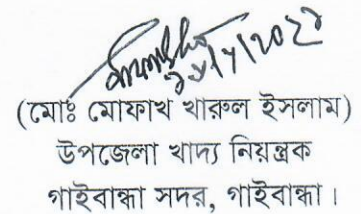 (মোঃ মোফাখ খারুল ইসলাম)
উপজেলা খাদ্য নিয়ন্ত্রক
গাইবান্ধা সদর, গাইবান্ধা।